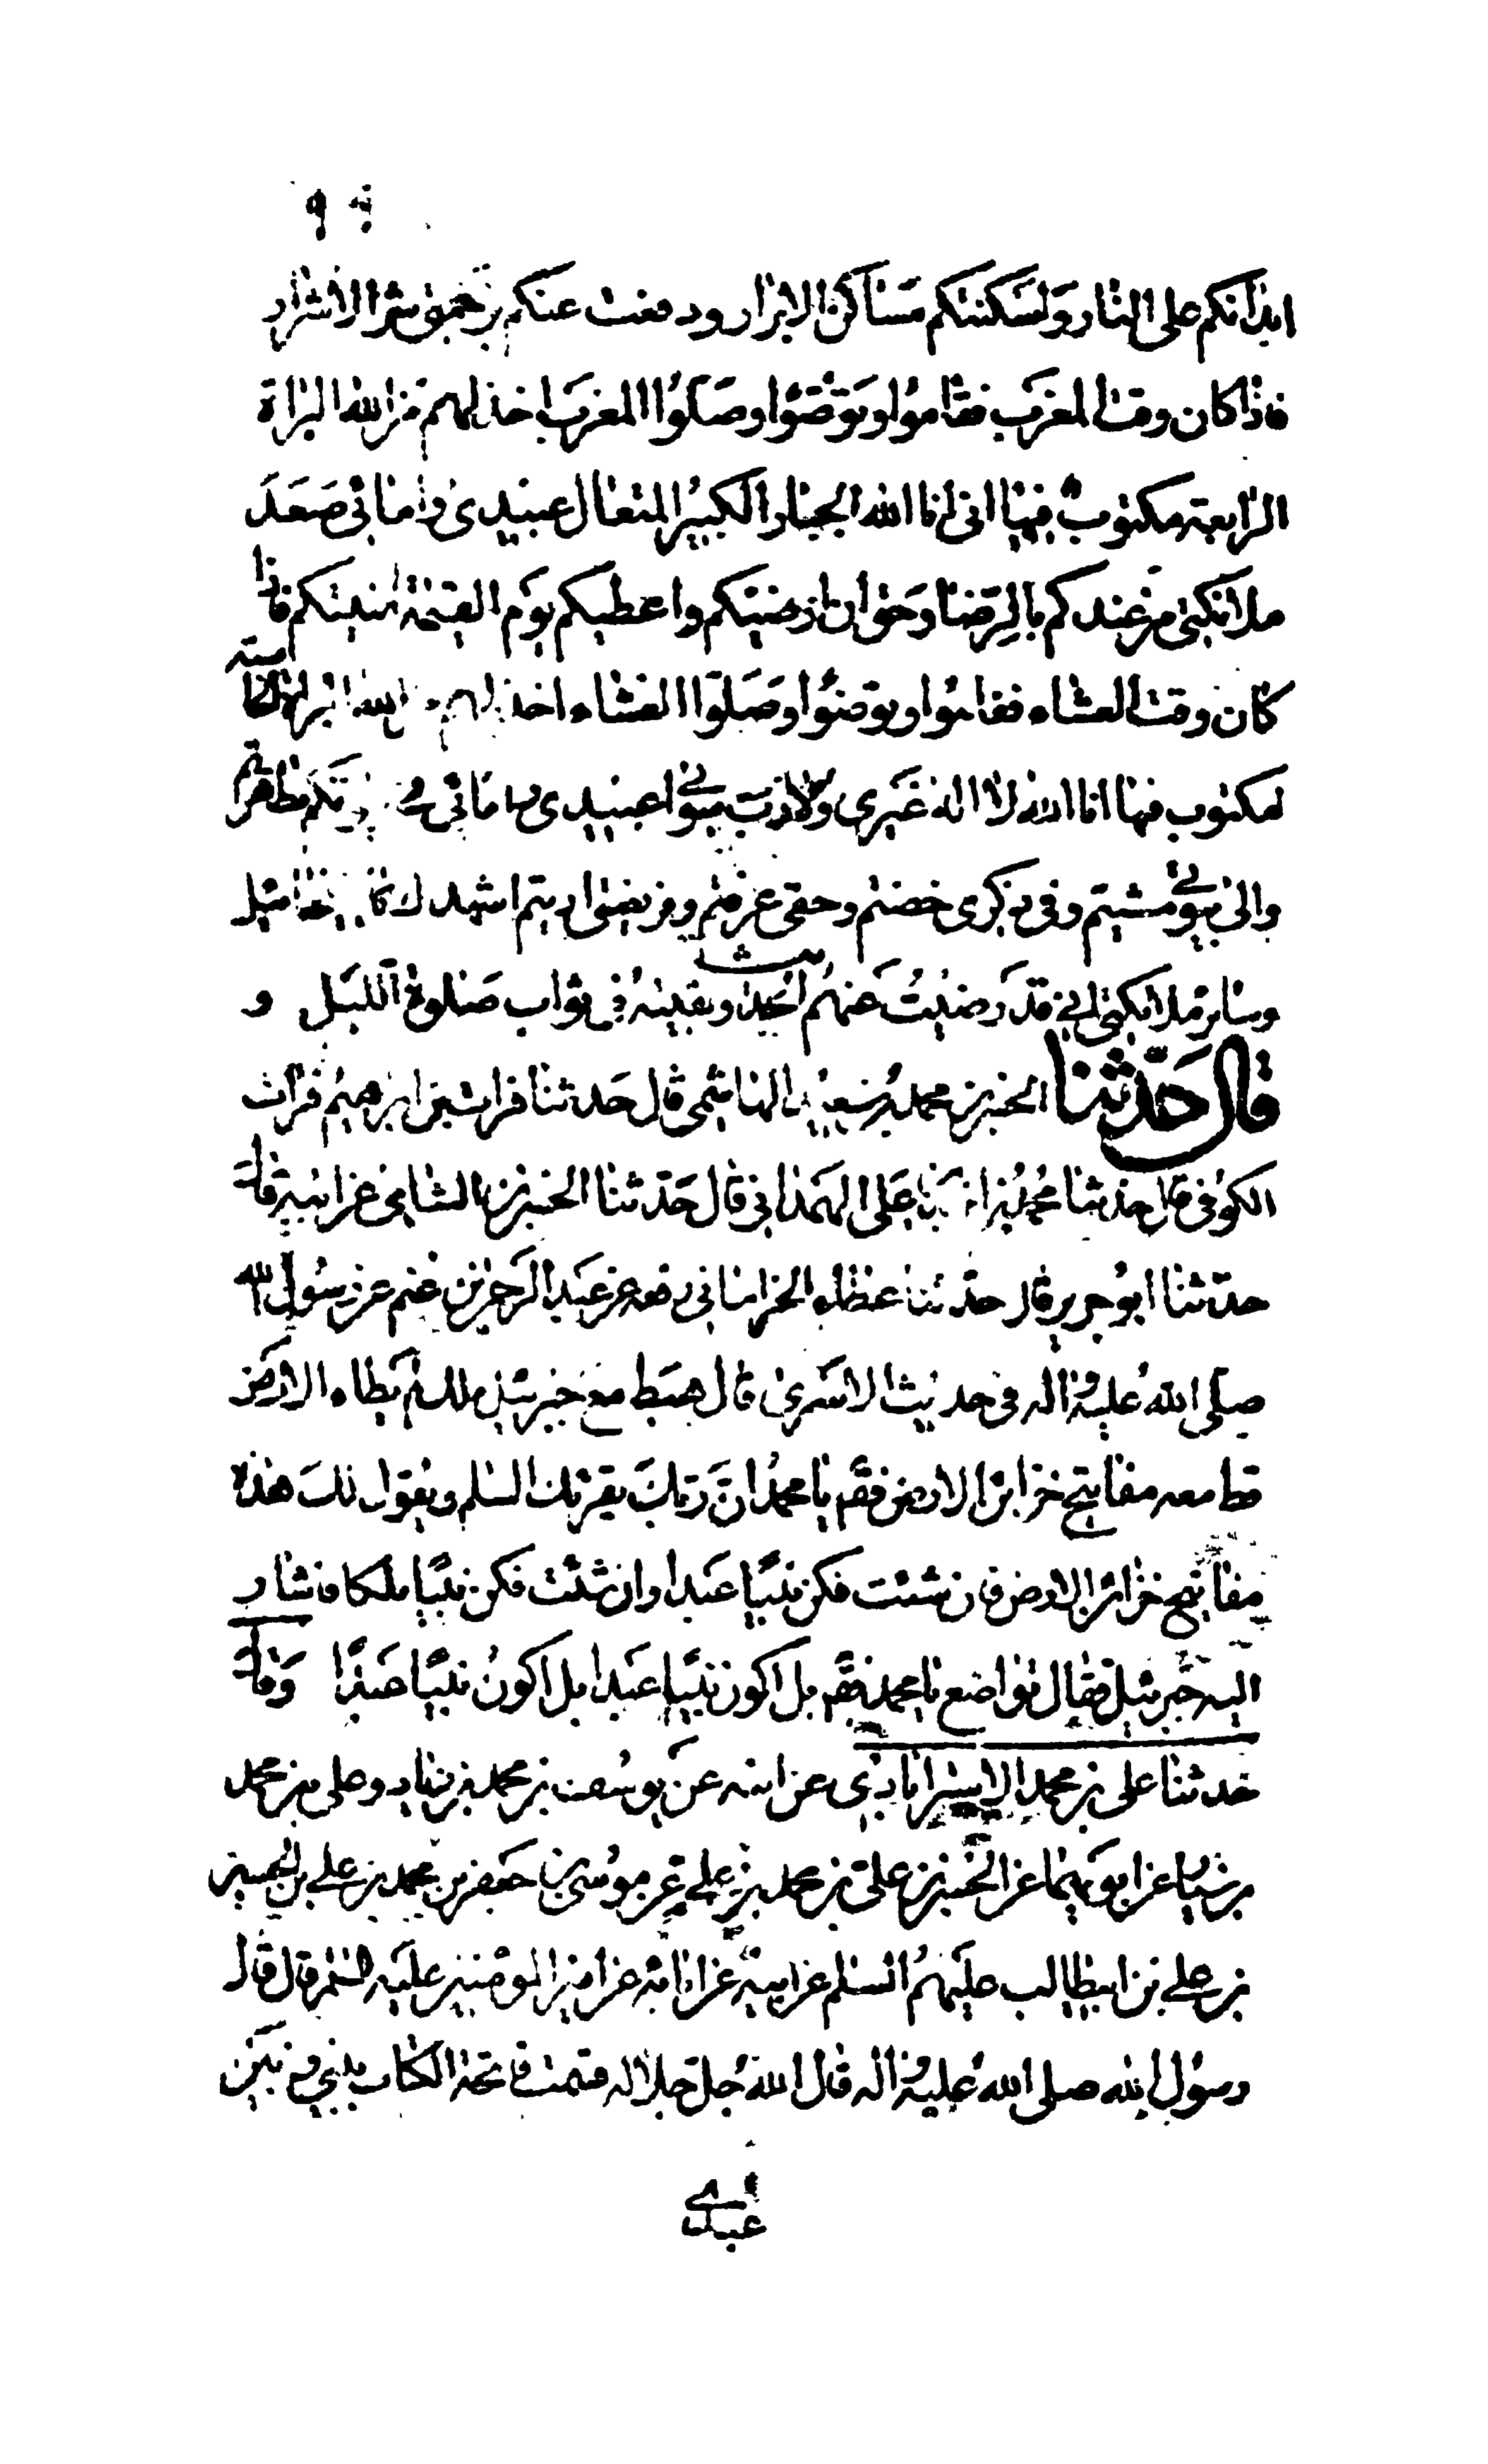 ٩
ابدانكم على النار ولسكنتكم مساكن الابرار ودفعت عنكم برحمتي شر الاشرار
فاذا كان وقت المغرب فقاموا وتوضؤا وصلوا المغرب اخذ لهم من الله البراة
الرابعة مكتوب فيها اني انا الله الجبار الكبير المتعال عبيدى وامائى صعد
ملائكتى من عندكم بالرضا وحق ان ارضيتكم واعطيكم يوم القيمة امنيتكم فاذا
كان وقت العشاء فقاموا وتوضؤا وصلوا العشاء اخذ لهم من الله البراة الخامسة
مكتوب فيها انا الله لا اله غيرى ولا رب سوائي عبيدى امائى في بيوتكم تطهرتم
والى بيوتى مشيتم وفى ذكرى خضتم وحقى عرفتم وفرايضى اديتم اشهدك يا
وسائر ملائكتى انى قد رضيت عنهم الحديث وبقيته في ثواب صلوة الليل و
قال حدثنا الحسن بن محمد بن سعيد الهاشمى قال حدثنا فرات بن ابرهيم فرات
الكوفى قال حدثنا محمد بن احمد بن على الهمدانى قال حدثنا الحسن بن الشامى عن ابيه قال
حدثنا ابو جرير قال حدثنا عطاء الخراسانى رفعه عن عبد الرحمن بن غنم عن رسول الله
صلى الله عليه واله فى حديث الاسرى قال هبط مع جبرئيل ملك لم يطاء الارض
قط معه مفاتيح خزائن الارض فقم يا محمد ان ربك يقرئك السلم ويقول لك هذه
مفاتيح خزائن الارض فان شئت فكن نبيا عبدا وان شئت فكن نبيا ملكا فاشار
اليه جبرئيل فقال تواضع يا محمد فقم بل اكون نبيا عبدا بل اكون نبيا عبدا وقال
حدثنا على بن محمد الاسترابادى عن ابيه عن يوسف بن محمد بن زياد وعلى بن محمد
بن سيار عن ابويهما عن الحسن بن على بن محمد بن على عن موسى بن جعفر بن محمد بن على بن الحسين
بن على بن ابيطالب عليهم السلم عن ابيه عن ابائه عن امير المؤمنين عليه السلم قال قال
رسول الله صلى الله عليه واله قال الله جل جلاله قسمت فاتحة الكتاب بينى وبين
عبدى